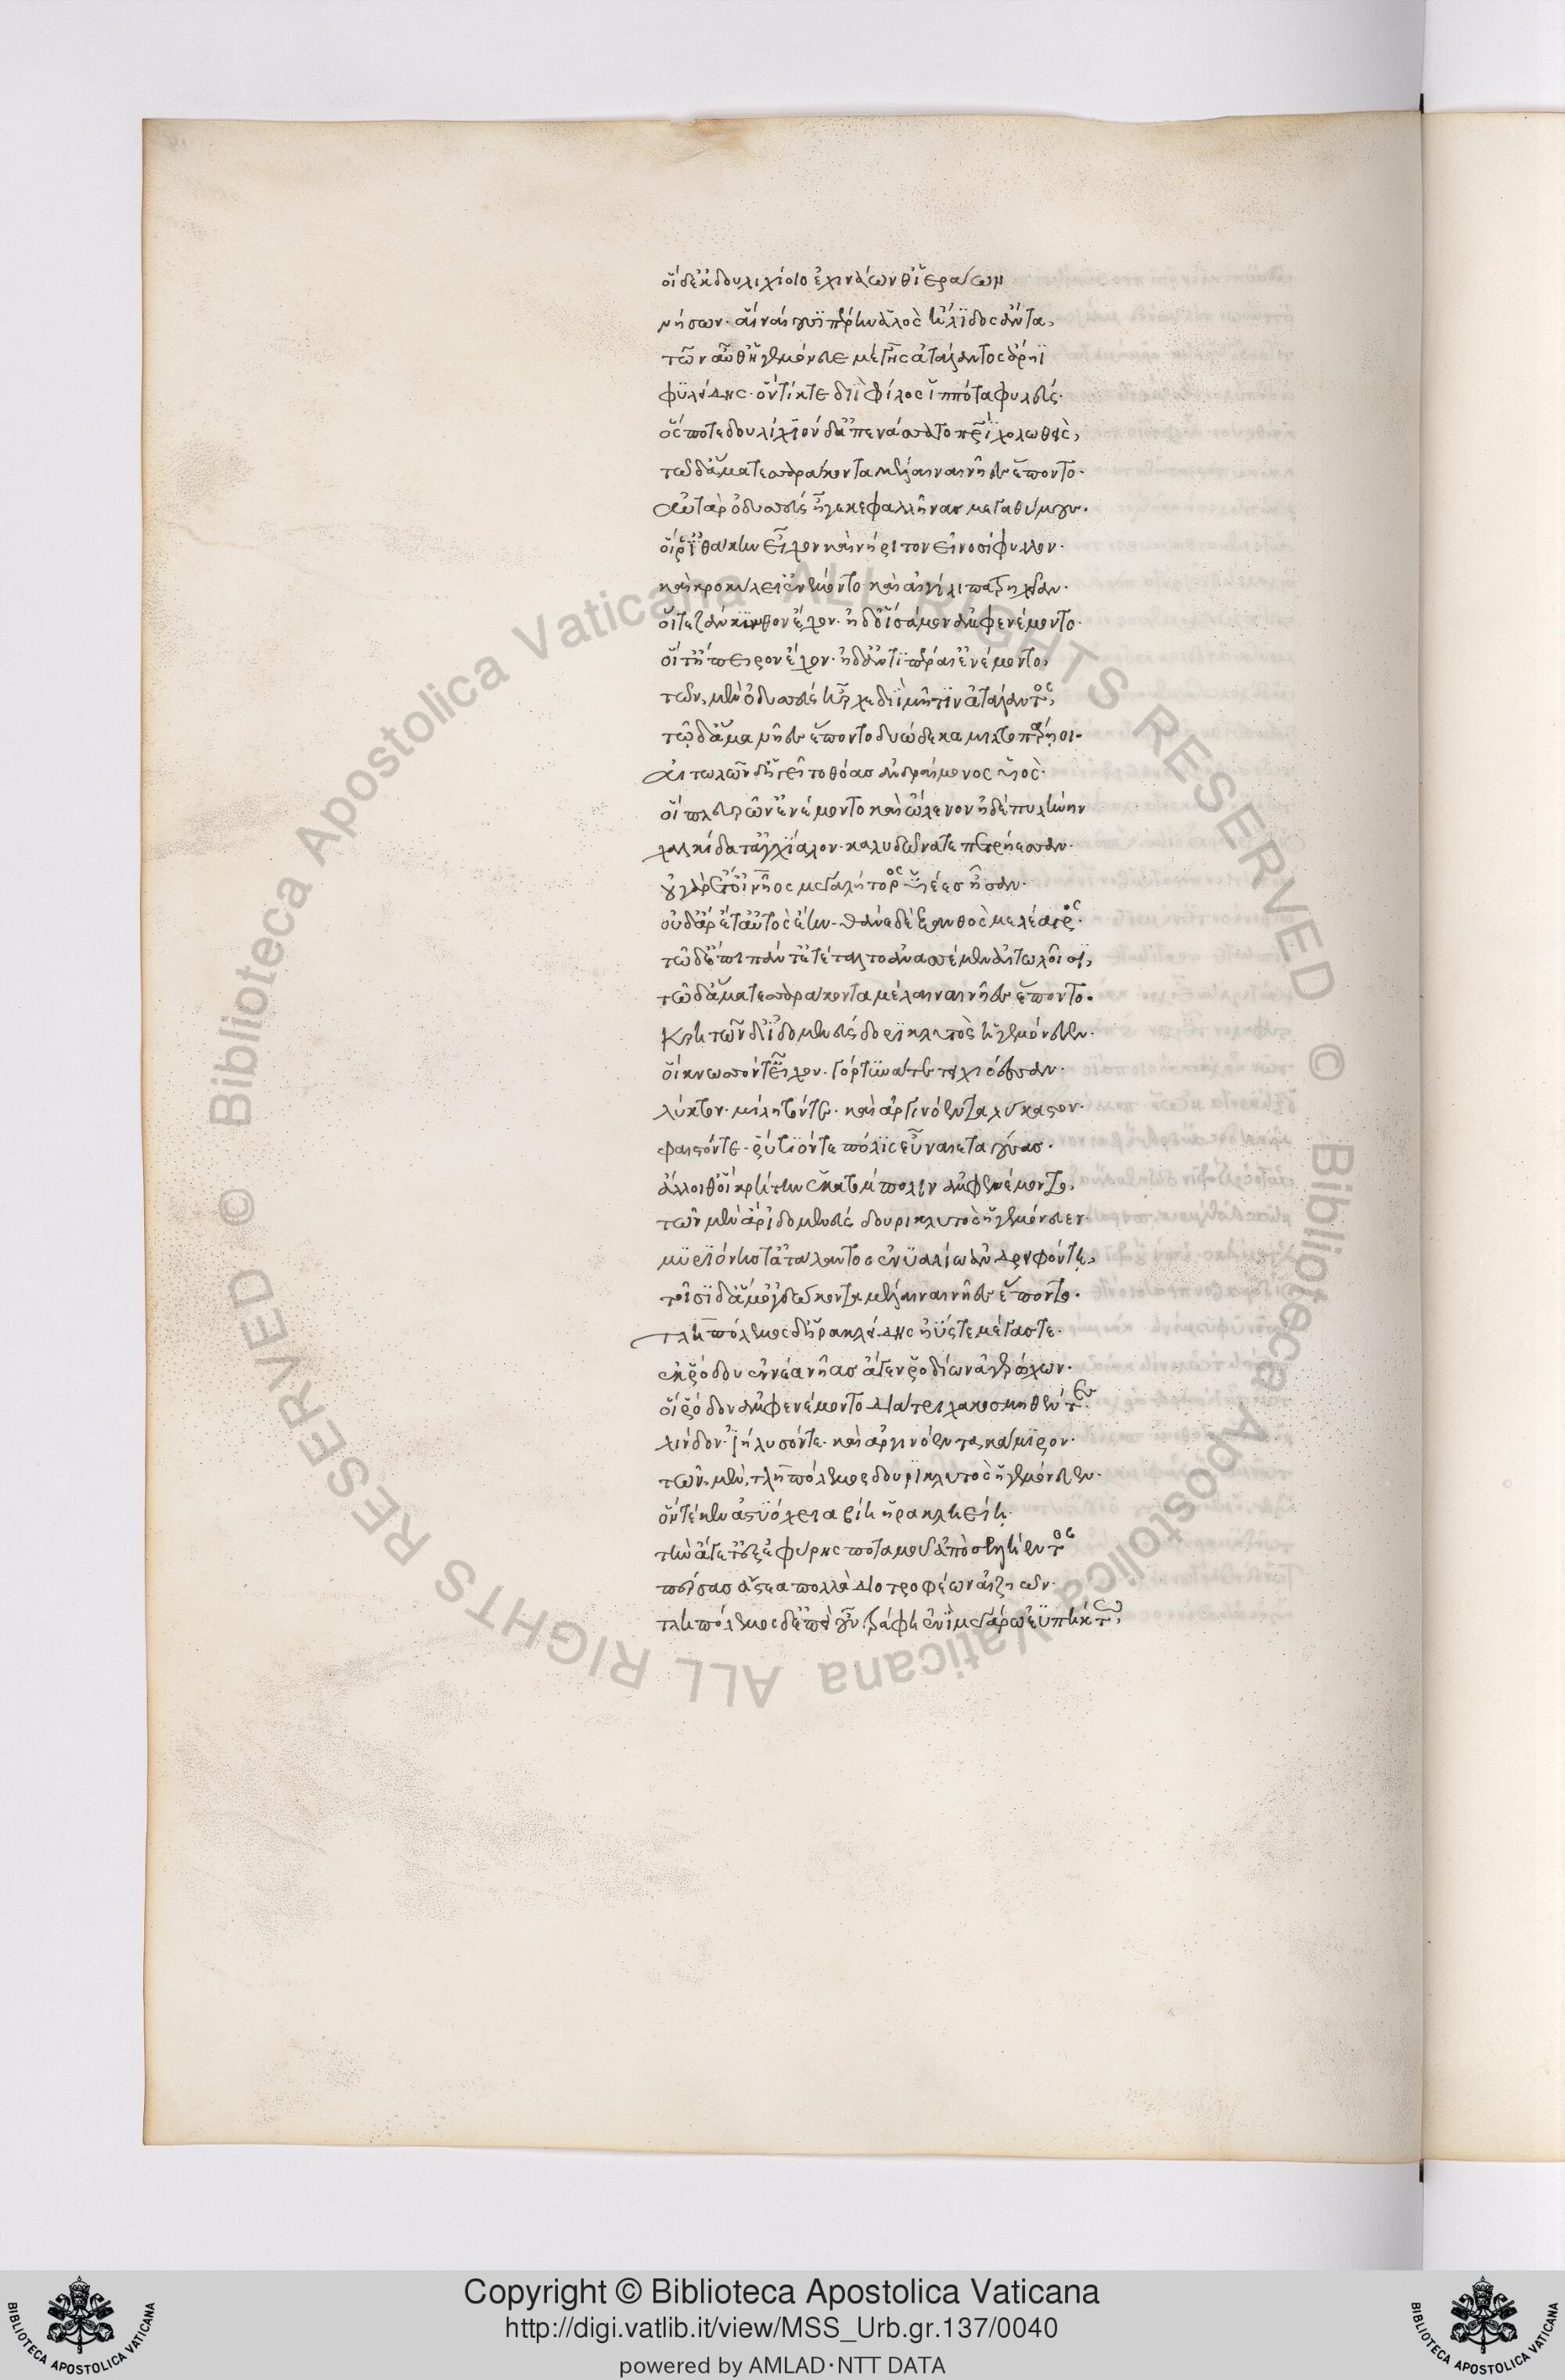 οἳ δ' ἐκ δουλιχίοιο ἐχινάων θ' ἱεράων
νήσων· αἳ ναίουσι πέρην ἁλὸς ἤλιδος ἄντα,
τῶν αὖθ' ἡγεμόνευε μέγης ἀτάλαντος ἄρηϊ
φυλείδης· ὃν τίκτε διῒ φίλος ἱππότα φυλεύς·
ὅς ποτε δουλίχιόνδ' ἀπενάσσατο πατρὶ χολωθεὶς,
τῷ δ' ἅμα τεσσαράκοντα μέλαιναι νῆες ἕποντο·
αὐτὰρ ὀδυσσεὺς ἦγε κεφαλλῆνας μεγαθύμους·
οἵ ῥ' ἰθάκην εἶχον καὶ νήριτον εἰνοσίφυλλον·
καὶ κροκύλει' ἐνέμοντο καὶ αἰγίλιπα τρηχεῖαν·
οἵ τε ζάκυνθον ἔχον· ἠδ' οἳ σάμον ἀμφενέμοντο·
οἵ τ' ἤπειρον ἔχον· ἠδ' ἀντιπέραι' ἐνέμοντο,
τῶν μὲν ὀδυσσεὺς ἦρχε διῒ μῆτιν ἀτάλαντος,
τῷ δ' ἅμα νῆες ἕποντο δυώδεκα μιλτοπάρῃοι·
αἰτωλῶν δ' ἡγεῖτο θόας ἀνδραίμονος υἱὸς·
οἳ πλευρῶν' ἐνέμοντο καὶ ὤλενον ἠδὲ πυλήνην
χαλκίδα τ' ἀγχίαλον· καλυδῶνα τε πετρήεσσαν·
οὐ γὰρ ἔτ' οἰνῆος μεγαλήτορος υἱέες ἦσαν·
οὐδ' ἄρ ἔτ' αὐτὸς ἔην· θάνε δὲ ξανθὸς μελέαγρος·
τῷ δ' ἐπὶ πάντ' ἐτέταλτο ἀνασσέμεν αἰτωλοῖσι,
τῷ δ' ἅμα τεσσαράκοντα μέλαιναι νῆες ἕποντο·
Κρητῶν δ' ἰδομενεὺς δουρικλυτὸς ἡγεμόνευεν·
οἳ κνωσσόν τ' εἶχον· γόρτυνά τε τειχιόεσσαν·
λύκτον· μίλητόν τε· καὶ ἀργινόεντα λύκαστον·
φαιστόν τε· ῥύτιόν τε πόλις εὖ ναιεταούσας·
ἄλλοι θ' οἳ κρήτην ἑκατόμπολιν ἀμφενέμοντο,
τῶν μὲν ἄρ' ἰδομενεὺς δουρικλυτὸς ἡγεμόνευεν·
μηριόνης τ' ἀτάλαντος ἐνυαλίῳ ἀνδρειφόντῃ,
τοῖσι δ' ἅμ' ὀγδώκοντα μέλαιναι νῆες ἕποντο·
τληπόλεμος δ' ἡρακλείδης ἠΰς τε μέγας τε·
ἐκ ῥόδου ἐννέα νῆας ἄγεν ῥοδίων ἀγερώχων·
οἳ ῥόδον ἀμφενέμοντο διὰ τρίχα κοσμηθέντες·
λίνδον· ἰήλυσόν τε· καὶ ἀργινόεντα κάμιρον·
τῶν μὲν, τληπόλεμος δουρικλυτὸς ἡγεμόνευεν·
ὃν τέκεν ἀστυόχεια βίῃ ἡρακληείῃ·
τὴν ἄγετ' ἐξ ἐφύρης ποταμοῦ ἀπὸ σελλήεντος
πέρσας ἄστεα πολλὰ διοτροφέων αἰζηῶν·
τληπόλεμος δ' ἐπεὶ οὖν τράφη ἐνὶ μεγάρῳ ἐϋπήκτῳ,
Copyright © Biblioteca Apostolica Vaticana
http://digi.vatlib.it/view/MSS_Urb.gr.137/0040
powered by AMLAD·NTT DATA